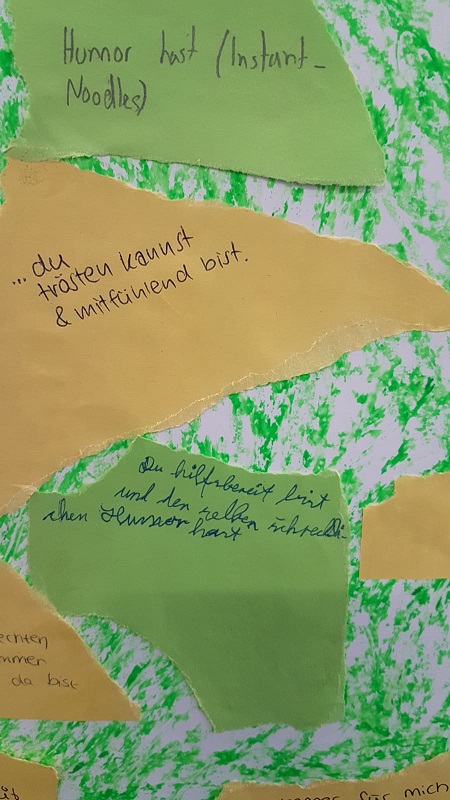 Humor hast (Instant-
Noodles)
...du
trösten kannst
& mitfühlend bist.
Du hilfsbereit bist
und den selben schreckli-
chen Humor
hast
echten
mmer
da bist
für mich